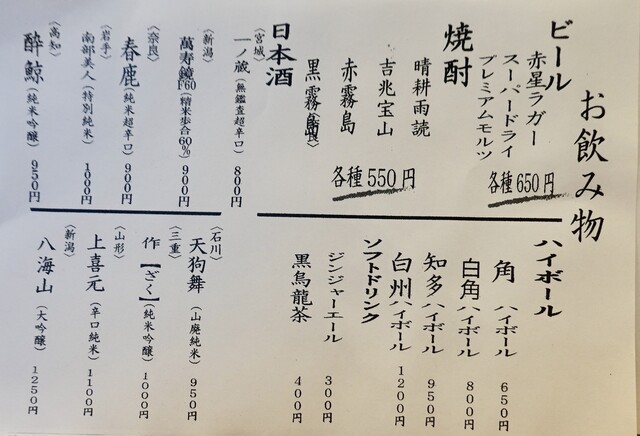 お飲み物
ビール
赤星ラガー
スーパードライ
プレミアムモルツ
各種650円
焼酎
晴耕雨読
吉兆宝山
赤霧島
黒霧島
各種550円
日本酒
(宮城)
一ノ蔵(無鑑査超辛口) 800円
(新潟)
萬寿鏡F60(精米歩合60%) 900円
(奈良)
春鹿(純米超辛口) 900円
(岩手)
南部美人(特別純米) 1000円
(高知)
酔鯨(純米吟醸) 950円
ハイボール
角ハイボール 650円
白角ハイボール 800円
知多ハイボール 950円
白州ハイボール 1200円
ソフトドリンク
ジンジャーエール 300円
黒烏龍茶 400円
(石川)
天狗舞(山廃純米) 950円
(三重)
作【ざく】(純米吟醸) 1000円
(山形)
上喜元(辛口純米) 1100円
(新潟)
八海山(大吟醸) 1250円